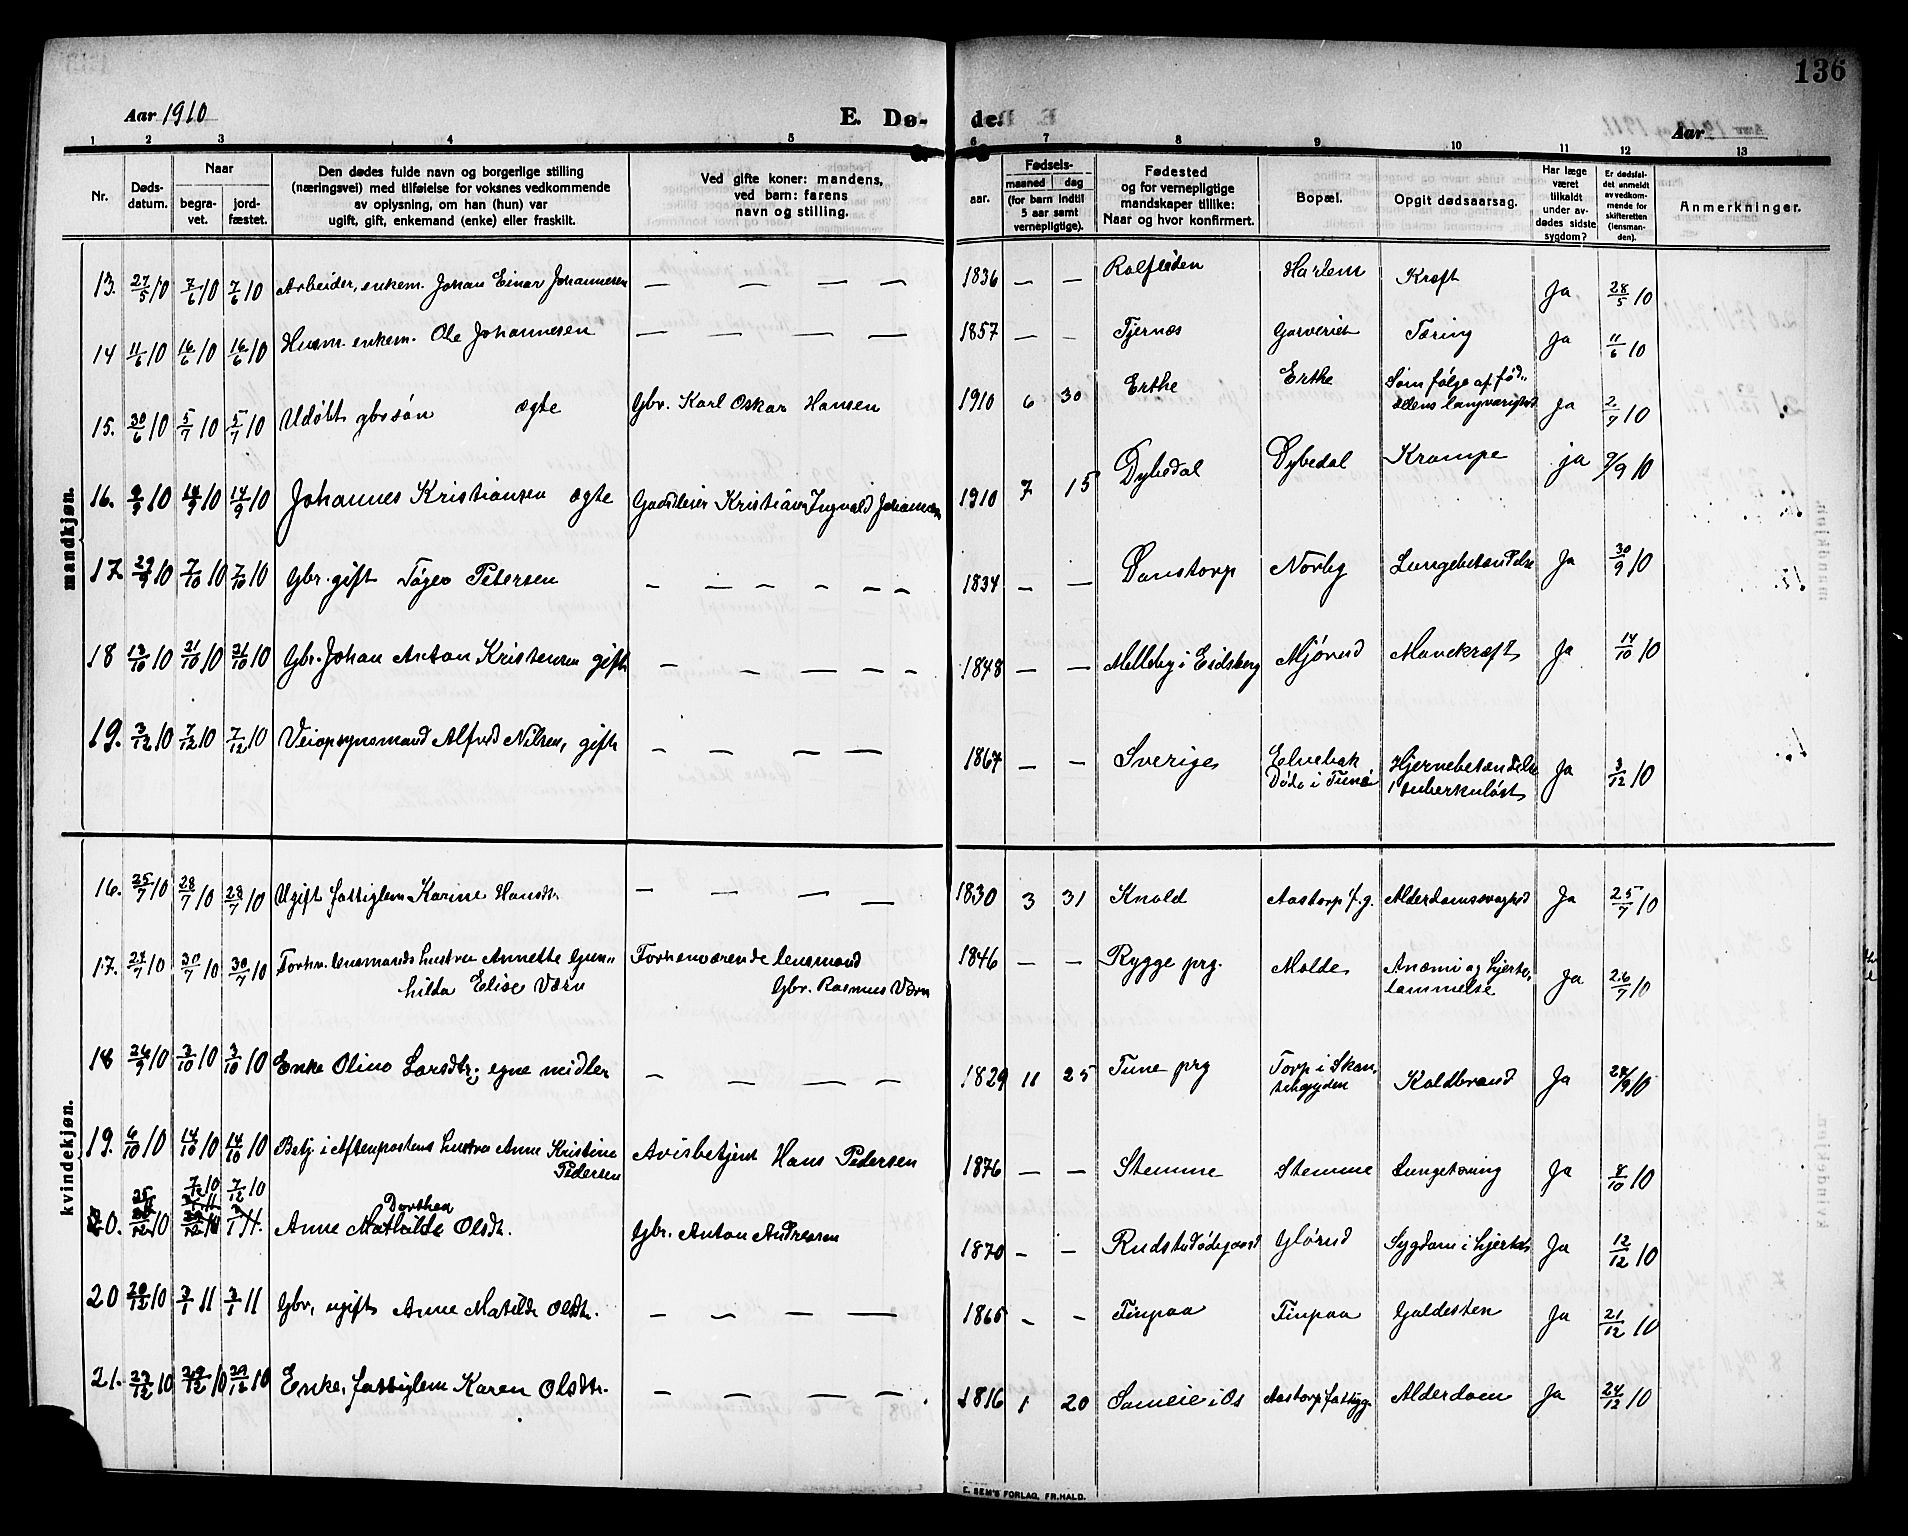 136
Aar 1910
E. Dø- de.
Aar
1 2 3 4 5 6 7 8 9 10 11 12 13
Nr.
Døds-
datum.
Naar
begra-
vet.
jord-
fæstet.
Den dødes fulde navn og borgerlige stilling
(næringsvei) med tilføielse for voksnes vedkommende
av oplysning, om han (hun) var
ugift, gift, enkemand (enke) eller fraskilt.
Ved gifte koner: mandens,
ved barn: farens
navn og stilling.
Fødsels-
aar.
maaned dag
(for barn indtil
5 aar samt
vernepligtige).
Fødested
og for vernepligtige
mandskaper tillike:
Naar og hvor konfirmert.
Bopæl.
Opgit dødsaarsag.
Har læge
været
tilkaldt
under av-
dødes sidste
sygdom?
Er dødsfal-
det anmeldt
av vedkom-
mende for
skifteretten
(lensman-
den).
Anmerkninger.
mandkjøn.
13. 27/5 10 7/6 10 7/6 10 Arbeider, enkem. Johan Einar Johannesen — — — — 1836 — — Rolfsøen Harlem Kræft Ja 28/5 10
14 11/6 10 16/6 10 16/6 10 Husm. enkem. Ole Johannesen — — — — 1857 — — Tjernæs Garveriet Tæring Ja 11/6 10
15. 30/6 10 5/7 10 5/7 10 Udøbt gbrsøn ægte Gbr. Karl Oskar Hansen 1910 6 30 Erthe Erthe Som følge af fød-
selens langvarighet Ja 2/7 10
16. 9/9 10 14/9 10 14/9 10 Johannes Kristiansen ægte Gaardeier Kristian Ingvald Johannesen 1910 7 15 Dybedal Dybedal Krampe ja 9/9 10
17 29/9 10 7/10 10 7/10 10 Gbr. gift Tøger Petersen — — — — — 1834 — — Danstorp Norby Lungebetændelse Ja 30/9 10
18 13/10 10 21/10 10 21/10 10 Gbr. Johan Anton Kristensen gift — — — — — 1848 — — Melleby i Eidsberg Mjørud Mavekræft Ja 14/10 10
19. 3/12 10 7/12 10 7/12 10 Veiopsynsmand Alfred Nilsen, gift — — — — 1867 — — Sverige Elvebak
Døde i Tune Hjernebetændelse
tuberkuløst Ja 3/12 10
kvindekjøn.
16. 25/7 10 28/7 10 28/7 10 Ugift fattiglem Karine Hansdt. — — — — 1830 3 31 Knold Aastorp f.g. Alderdomssvaghed Ja 25/7 10
17. 27/7 10 30/7 10 30/7 10 Forhv. lensmands hustru Annette Gun-
hilda Elise Værn Forhenværende lensmand
Gbr. Rasmus Værn 1846 — — Rygge prg. Molde Anæmi og hjerte-
lammelse Ja 26/7 10
18 26/9 10 3/10 10 3/10 10 Enke Oline Larsdtr; egne midler — — — — 1829 11 25 Tune prg Torp i Skan-
sebygden Koldbrand Ja 28/9 10
19. 6/10 10 14/10 10 14/10 10 Betj. i Aftenpostens hustru Anne Kristine
Pedersen Avisbetjent Hans Pedersen 1876 — — Stemme Stemme Lungetæring Ja 8/10 10
7/12 10 7/12 10
20. Anne Mathilde Dorthea Olsdt. Gbr. Anton Andresen 1870 — — Rudstødegaard Glørud Sygdom i hjertet Ja 12/12 10
20 20/12 10 3/1 11 3/1 11 Gbr, ugift Anne Matilde Olsdt. — — — — 1865 — — Finpaa Finpaa Galdesten Ja 21/12 10
21. 23/12 10 29/12 10 29/12 10 Enke, fattiglem Karen Olsdtr. — — — — 1816 1 20 Sameie i Os Aastorp fattigg. Alderdom Ja 24/12 10
E. SEM'S FORLAG, FR.HALD.